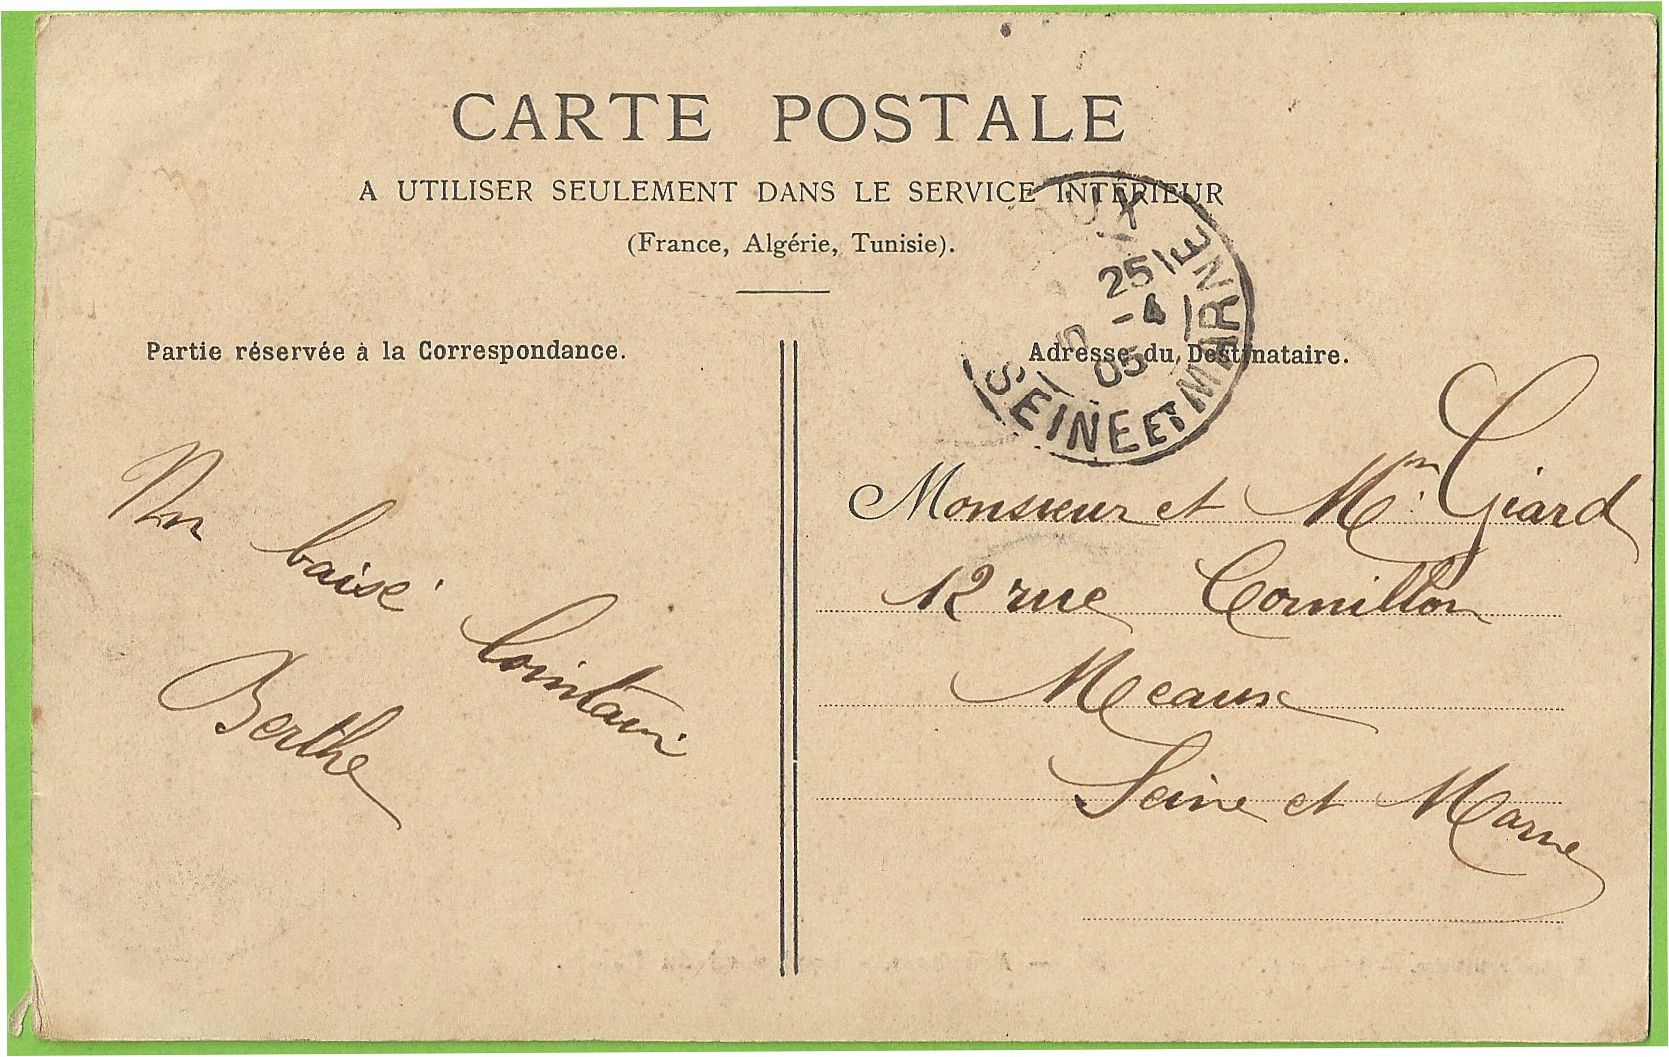 CARTE POSTALE
A UTILISER SEULEMENT DANS LE SERVICE INTÉRIEUR
(France, Algérie, Tunisie).
Partie réservée à la Correspondance.
Adresse du Destinataire.
25
-4
05
SEINE ET MARNE
baisé
lointain
Berthe
Monsieur et Mm Giard
12 rue Cornillon
Meaux
Seine et Marne